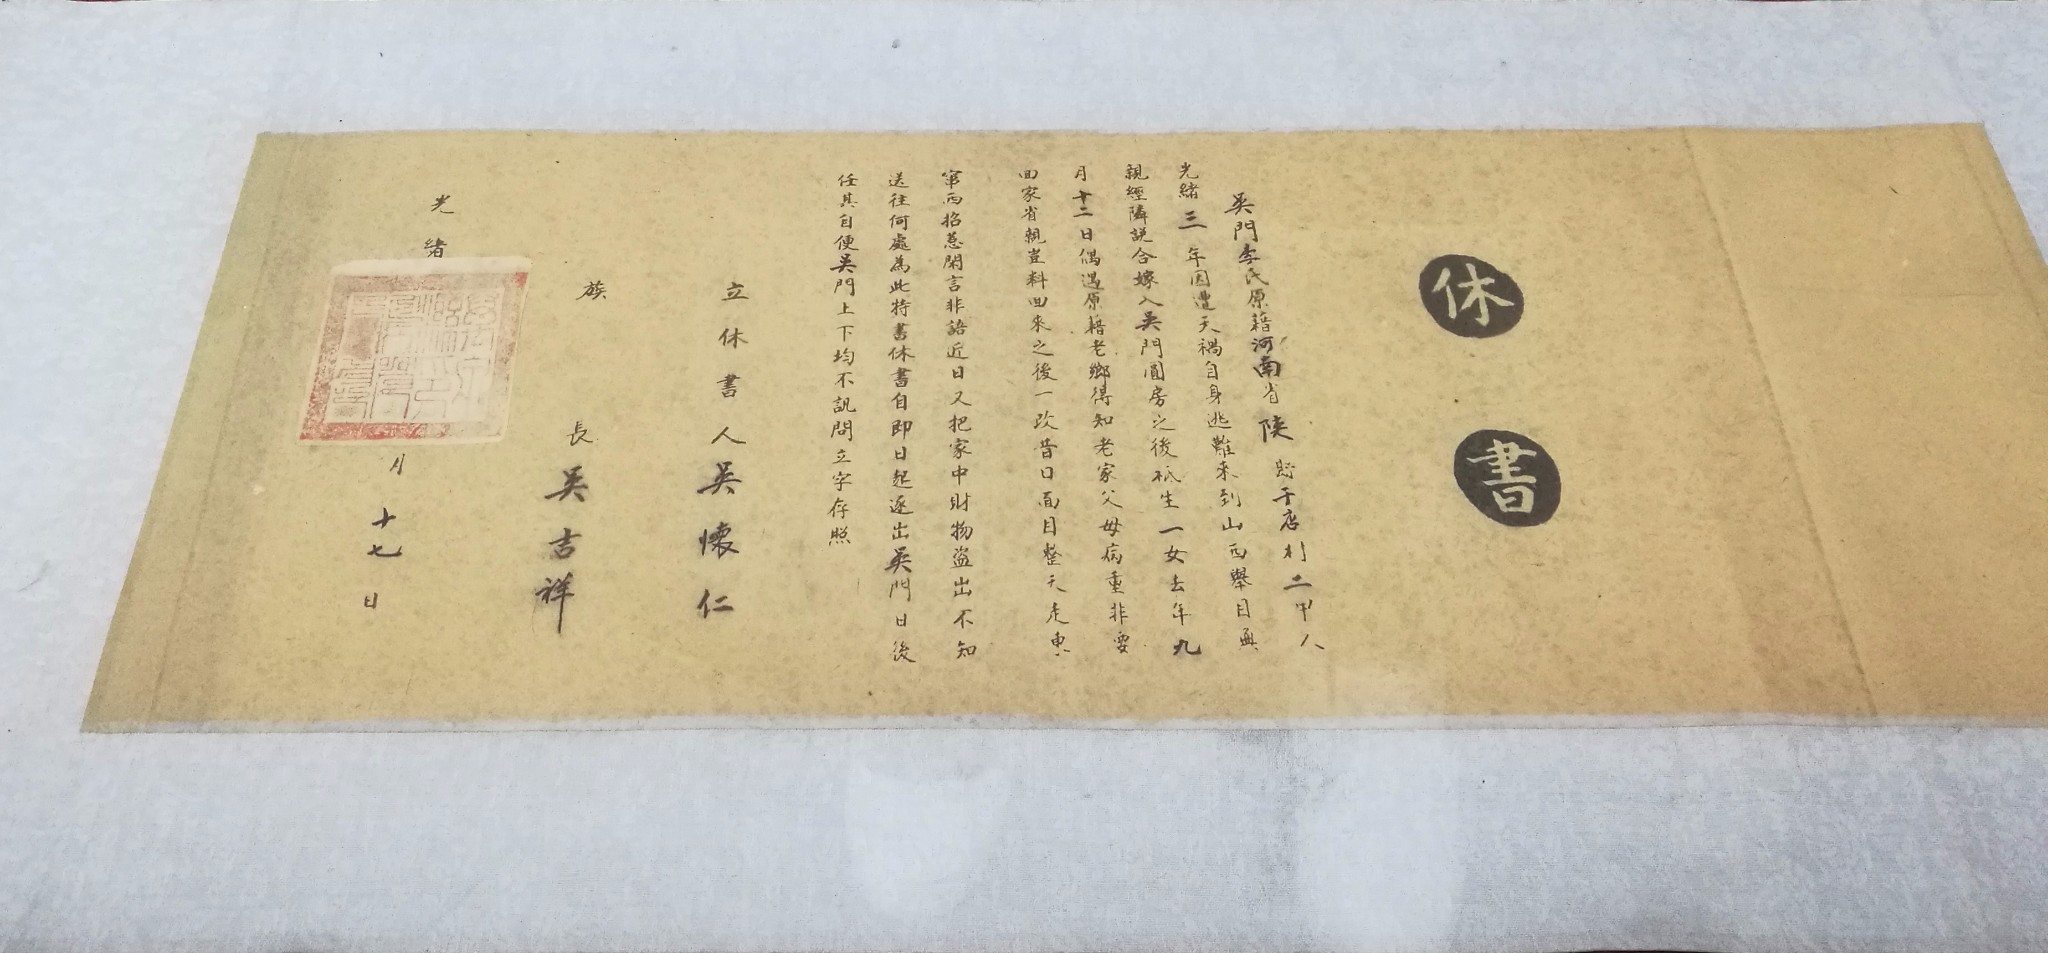 休書
吳門李氏原藉河南省陝 于店村二甲人
光緒三年因遭天禍自身逃難來到山西舉目無
親經隣說合嫁入吳門圓房之後祇生一女去年九
月十二日偶遇原藉老鄉得知老家父母病重非要
回家省親豈料回來之後一改昔日面目整天走東
竄西招惹閑言非語近日又把家中財物盜出不知
送往何處為此特書休書自即日起逐出吳門日後
任其自便吳門上下均不訊問立字存照
立休書人吳懷仁
族長吳吉祥
光緒 月十七日